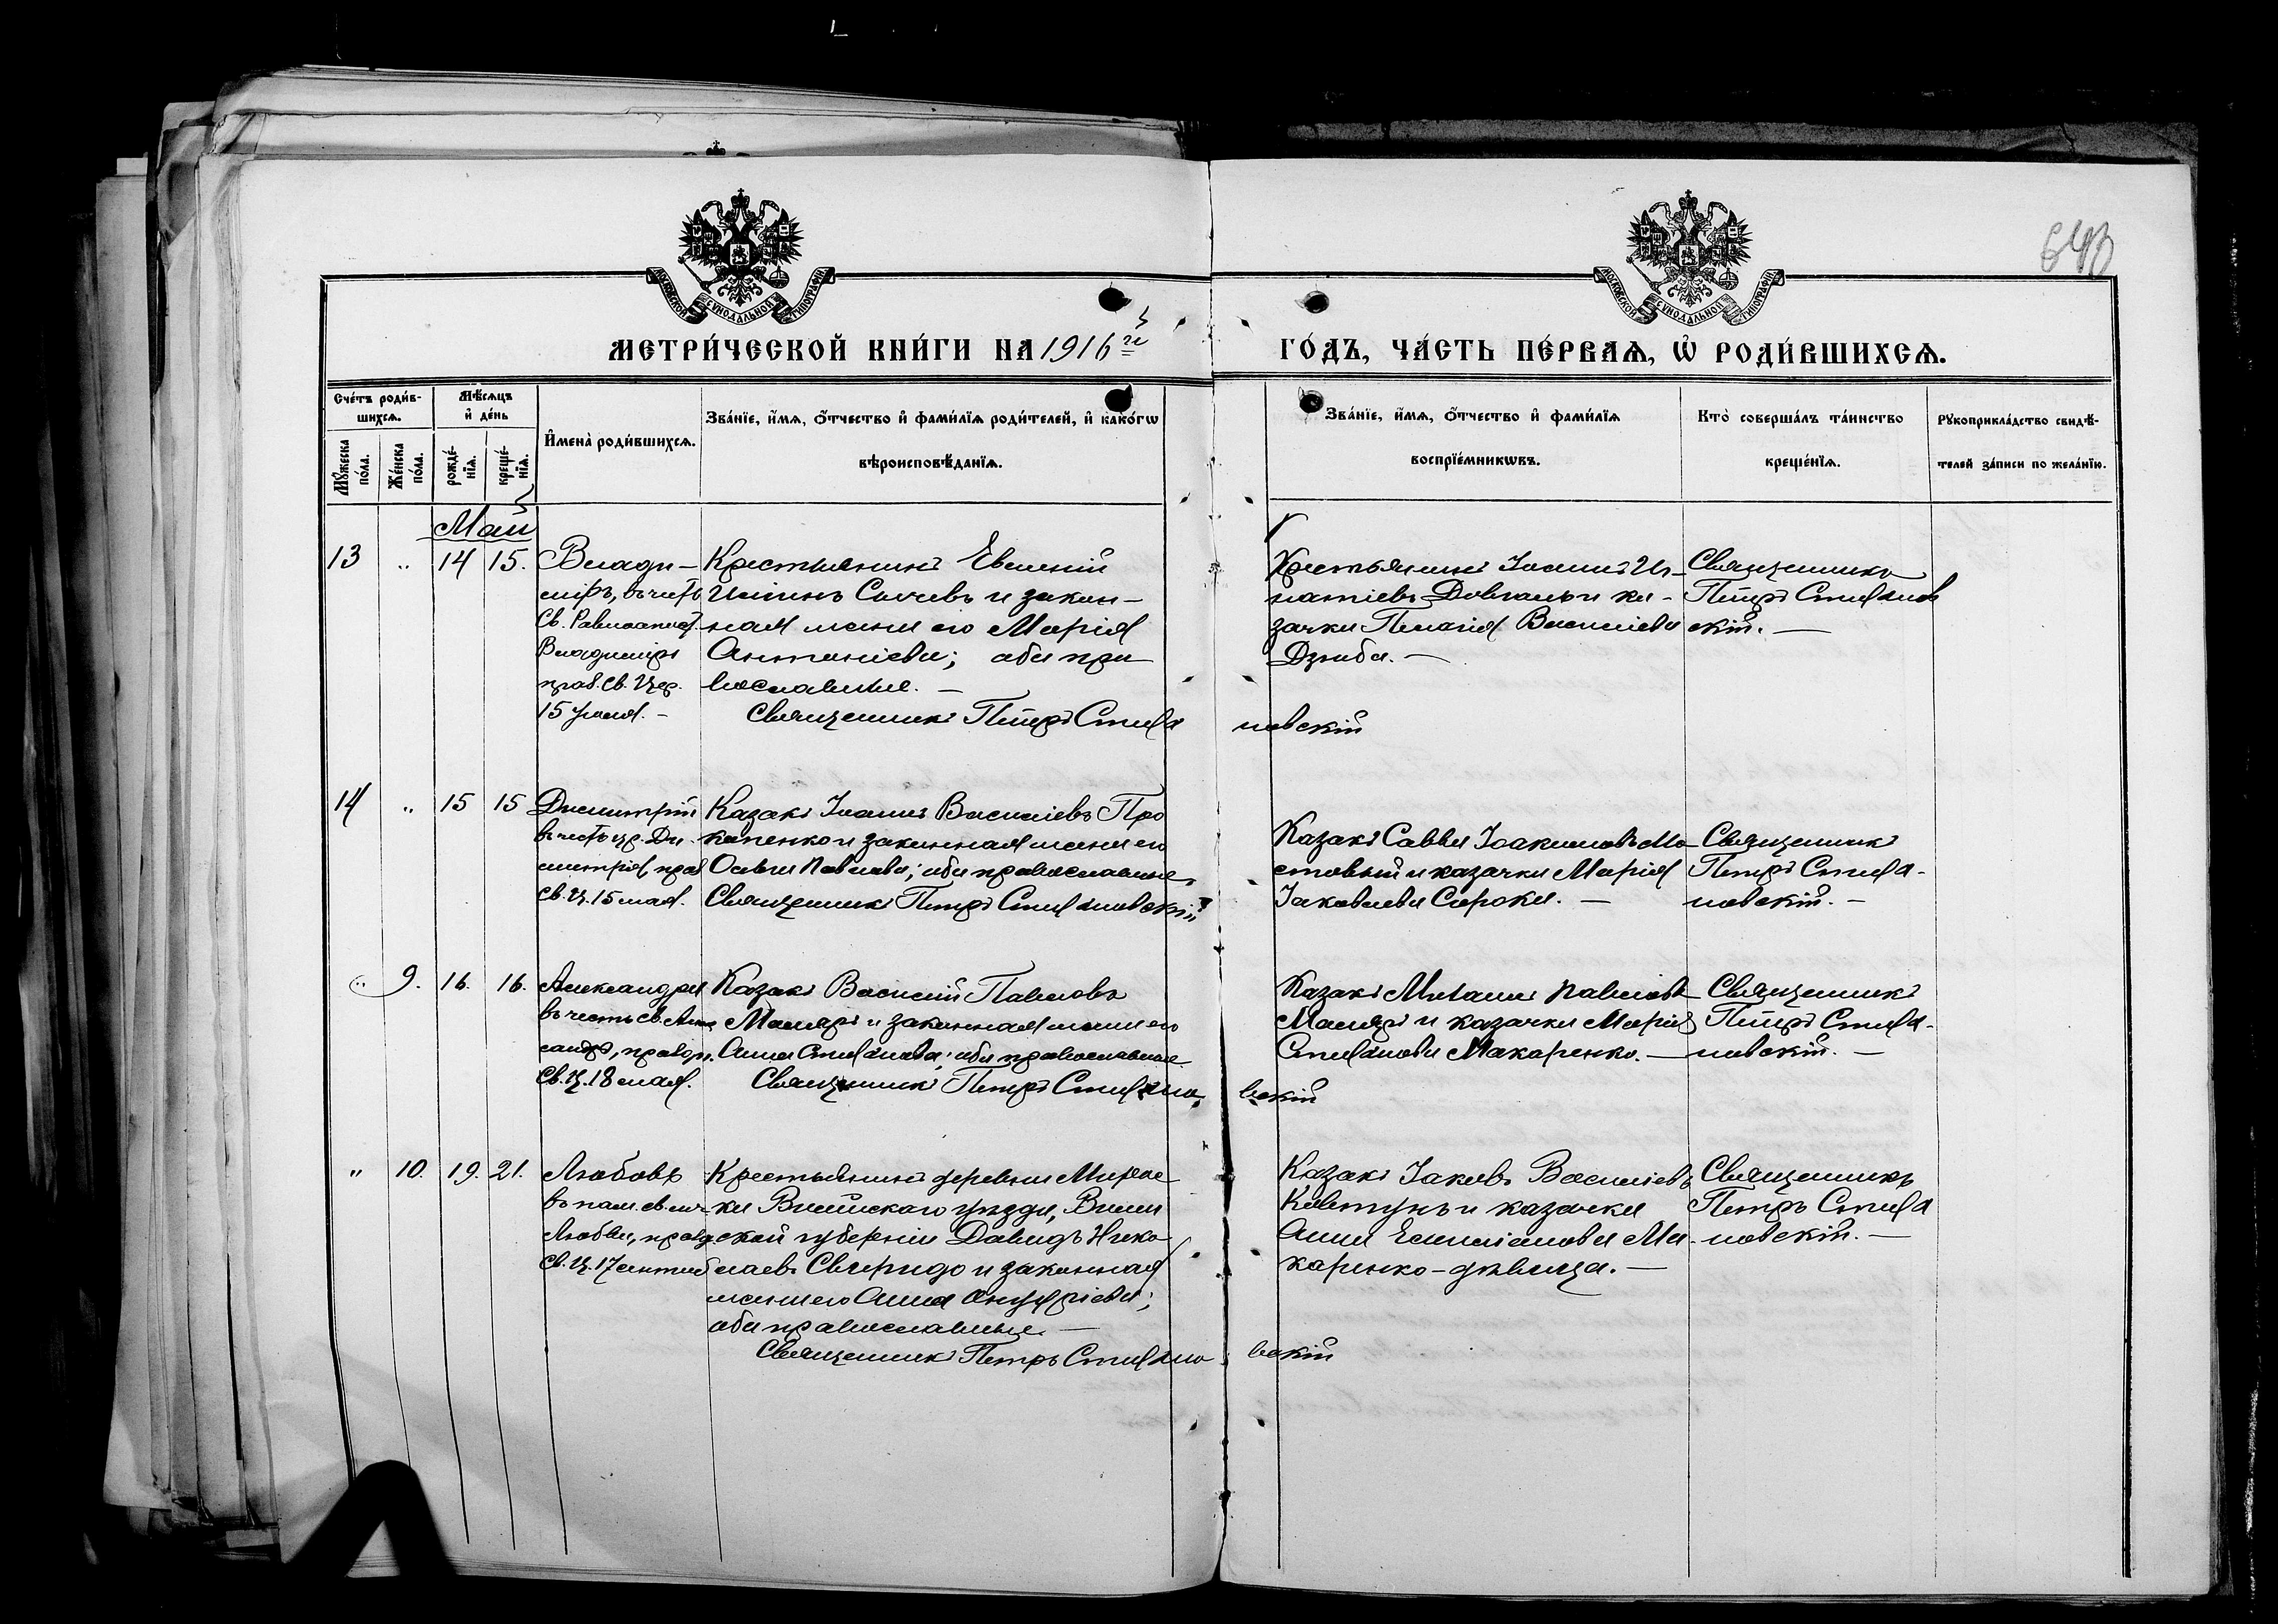 643
МОСКОВСКОЙ СѴНОДАЛЬНОЙ ТИПОГРАФІИ
МОСКОВСКОЙ СѴНОДАЛЬНОЙ ТИПОГРАФІИ
МЕТРИ́ЧЕСКОЙ КНИ́ГИ НА 1916 й
ГО́ДЪ, ЧА́СТЬ ПЕ́РВАѦ, Ѽ РОДИ́ВШИХСѦ.
Сче́тъ роди́в-
шихсѧ.
Мꙋ́жеска по́ла.
Же́нска по́ла.
Мѣ́сѧцъ
и҆ де́нь
рожде́-
нїѧ.
креще́-
нїѧ.
И҆мена̀ роди́вшихсѧ.
Зва́нїе, и҆́мѧ, ѻ҆́тчество и҆ фами́лїѧ роди́телей, и҆ како́гѡ
вѣроисповѣ́данїѧ.
Зва́нїе, и҆́мѧ, ѻ҆́тчество и҆ фами́лїѧ
воспрїе́мникѡвъ.
Кто̀ соверша́лъ та́инство
креще́нїѧ.
Рꙋкоприкла́дство свидѣ́-
телей за́писи по жела́нїю.
Май
13 " 14 15.
Влади-
міръ, въ честь
Св. Равноапост.
Владиміра
праз. Св. Цер.
15 Іюля. -
Крестьянинъ Евгеній
и закон-
ная жена его Марія
Антоніева; оба пра
вославные. —
Священникъ Петръ Стефа
новскій
Крестьянинъ Іоаннъ Иг-
натіевъ Довгаль и ка-
зачка Пелагія Васильева
Дзюба. —
Священникъ
Петръ Стефанов
скій. —
14 " 15 15
Димитрій
въ честь цр. Ди-
митрія, праз
Св. Ц. 15 мая.
Казакъ Іоаннъ Васильевъ Про
копенко и законная жена его
Ольга Павлова; оба православные
Священникъ Петръ Стефановскій
Казакъ Савва Іоакимовъ Мо-
стовый и казачка Марія
Іаковлева Сорока. —
Священникъ
Петръ Стефа-
новскій. —
" 9. 16. 16.
Александра
въ честь св. Алек
сандры, празд.
Св. Ц. 18 мая.
Казакъ Василій Павловъ
Маляръ и законная жена его
Анна Стефанова; оба православные
Священникъ Петръ Стефано
вскій
Казакъ Михаилъ Павловъ
Маляръ и казачка Марія
Стефанова Макаренко. —
Священникъ
Петръ Стефа-
новскій. —
" 10. 19. 21.
Любовь
въ пам. св. муч.
Любви, празд
Св. Ц. 17 сентяб
Крестьянинъ деревни
ка Виленскаго уѣзда, Вилен
ской губерніи Давидъ Нико
лаевъ Свиридо и законная
жена его Анна Онуфріева;
оба православные. —
Священникъ Петръ Стефано
вскій
Казакъ Іаковъ Васильевъ
Ковтунъ и казачка
Анна Емиліанова Ма-
каренко - дѣвица. —
Священникъ
Петръ Стефа
новскій. —